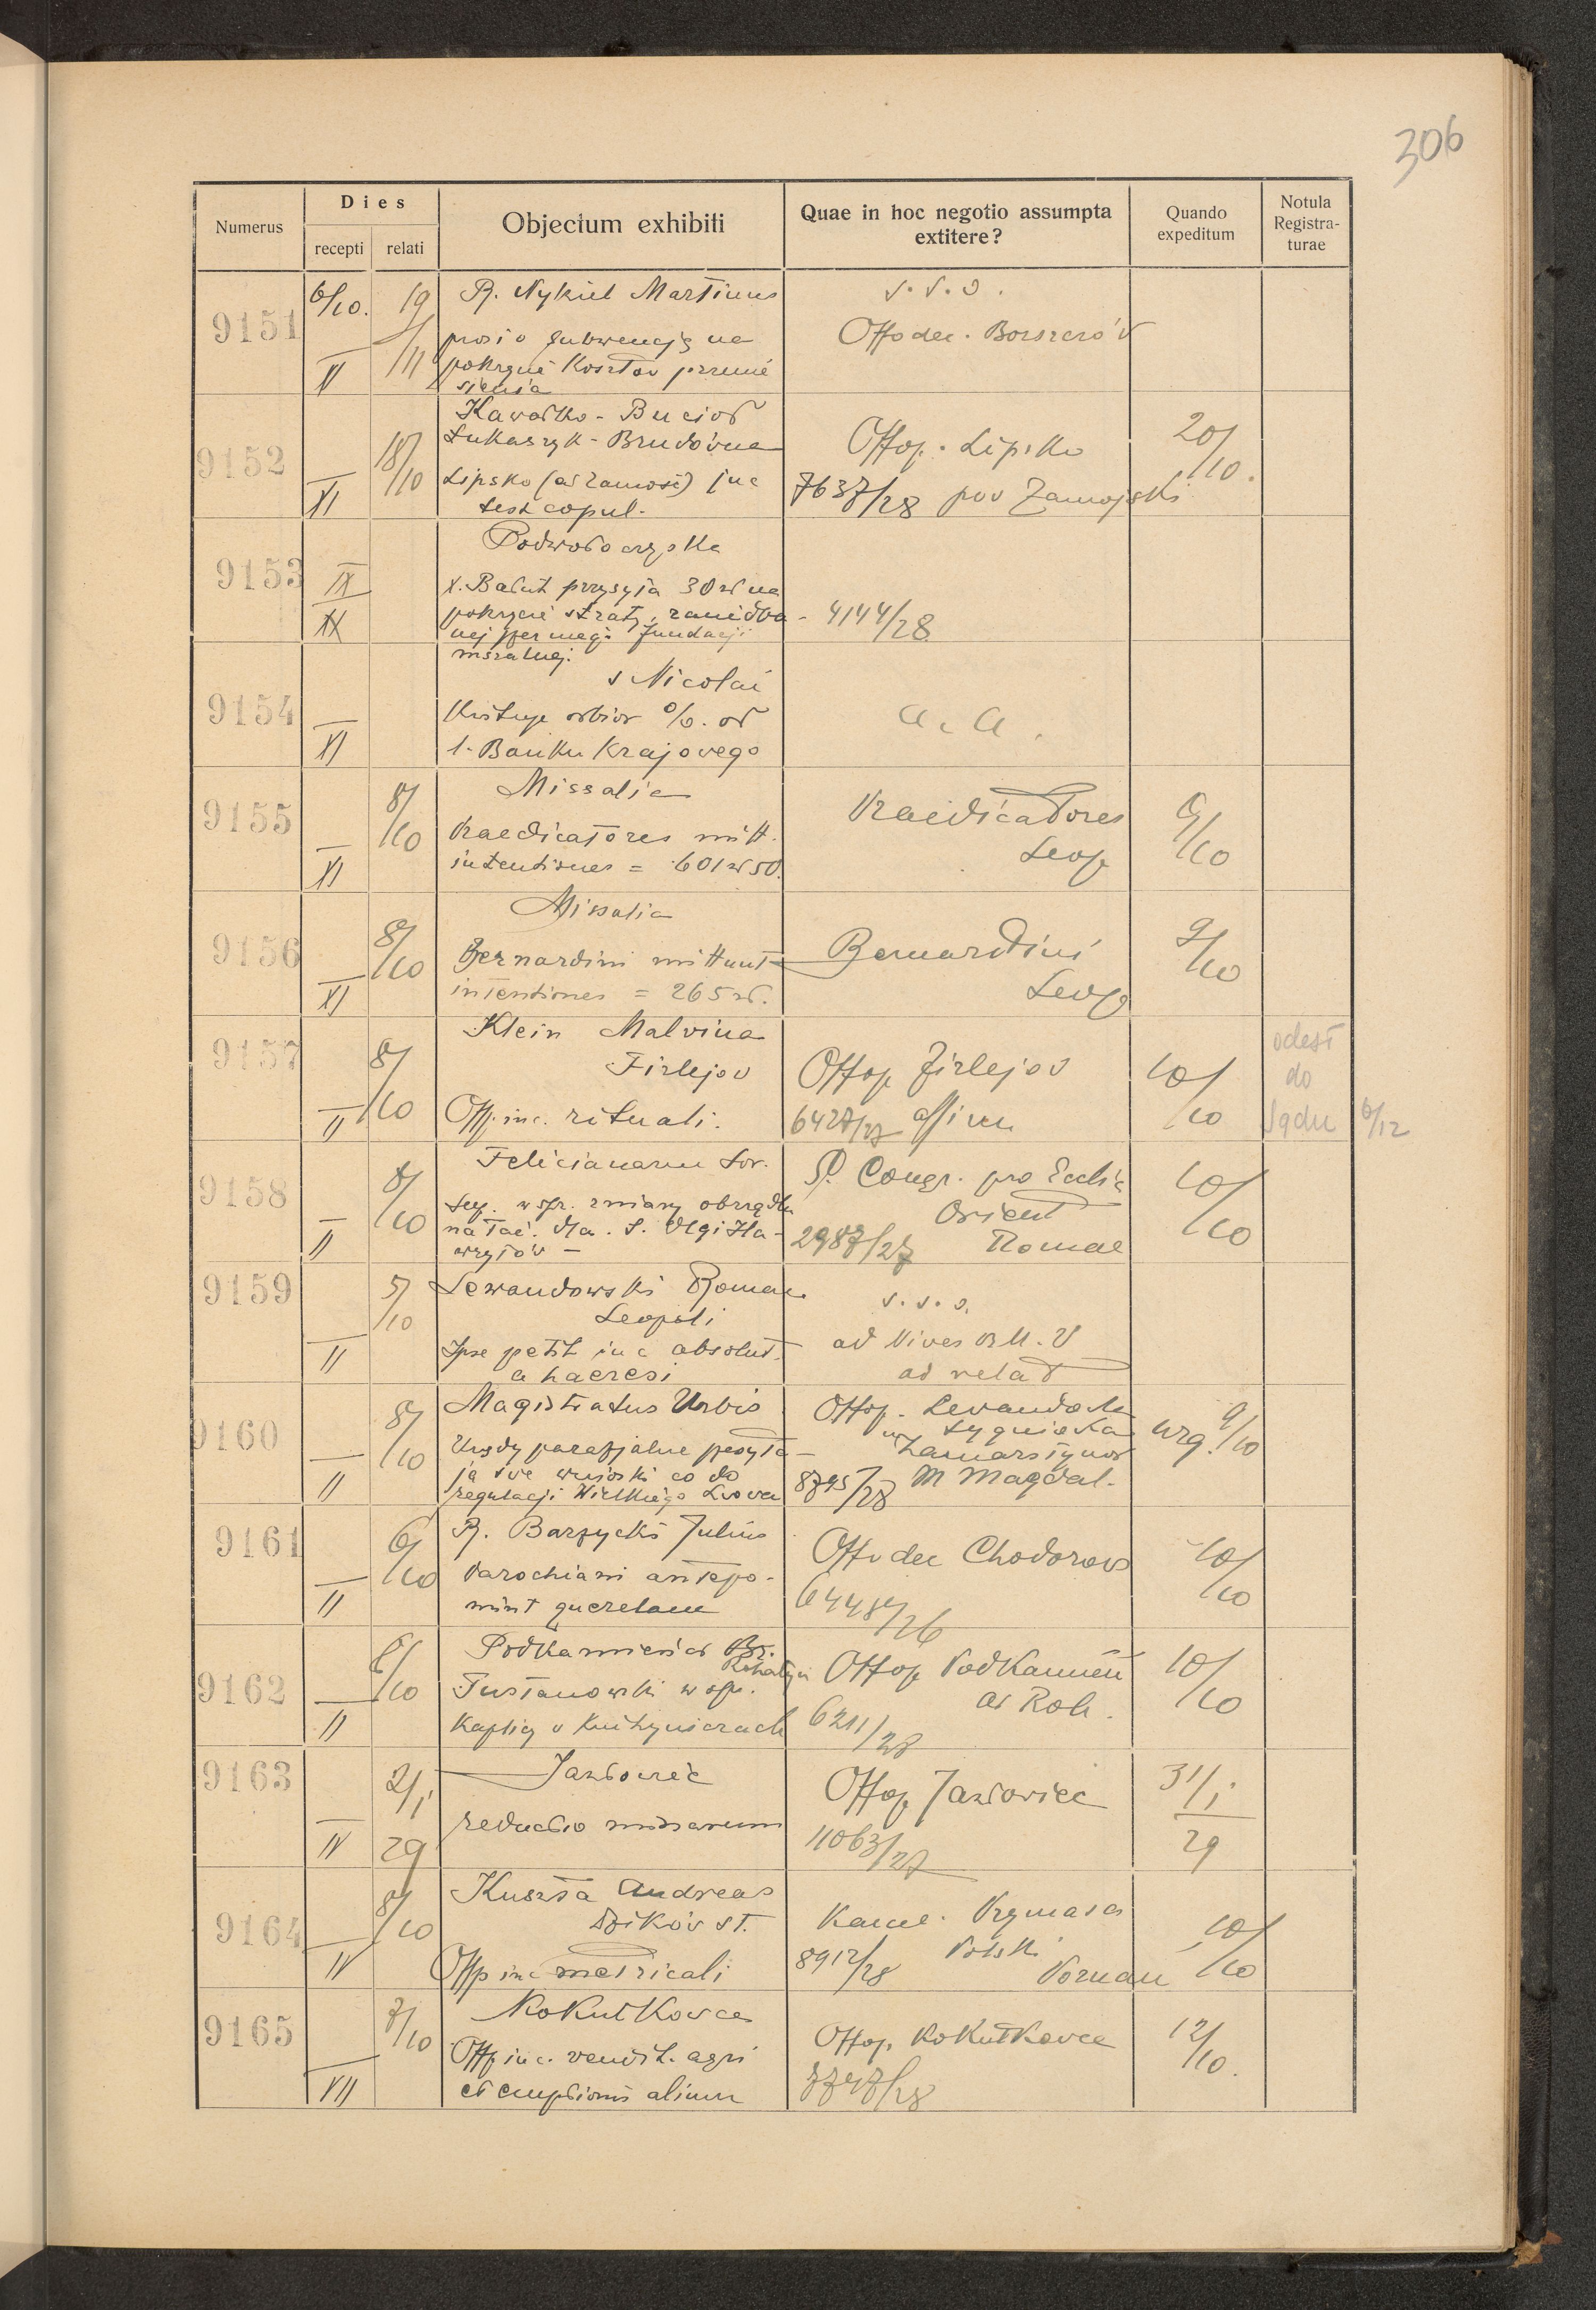 306
Numerus
Dies
recepti relati
Objectum exhibiti
Quae in hoc negotio assumpta
extitere?
Quando
expeditum
Notula
Registra-
turae
9151
6/10. 19/11
V
R. Nykiel Martinus
prosi o subwencję na
pokrycie kosztów przenie
sienia
s. s. o.
Off o dec. Borszczów
9152
18/10
XI
Kawałko - Bucioł
Łukaszyk - Brudówna
Lipsko (ad Zamość) inc
test copul.
Off op. Lipsko
7637/28 pow Zamojski
20/10.
9153
IX
XX
Podwołoczyska
X. Bałut przysyła 30 zł na
pokrycie straty zaniedba-
nej fundacji
mszalnej.
4144/28
9154
XI
S Nicolai
Kwituje odbiór %. od
Banku Krajowego
a. a.
9155
8/10
XI
Missalia
Praedicatores mitt.
intentiones = 601 zł 50.
Praedicatores
Leop
9/10
9156
8/10
XI
Missalia
Bernardini mittunt
intentiones = 265 zł.
Bernardini
Leop
9/10
9157
8/10
II
Klein Malvina
Firlejov
Off. inc. rituali.
Off op Firlejov
6427/27 affirm
10/10
odesł
do
Sądu 6/12
9158
8/10
II
Felicianarum Sor.
w spr. zmiany obrządku
na łać. dla S. Olgi Ha-
wryłów -
S. Congr. pro Ecclia
Orient
2987/27 Romae
10/10
9159
5/10
II
Lewandowski Roman
Leopoli
Ipse petit inc absolut.
a haeresi
s. s. o.
ad Nives B M. V
ad relat
9160
8/10
II
Magistratus Urbis
Urzędy parafjalne przyśla-
ją swe wnioski co do
regulacji Wielkiego Lwowa
Off op. Levandovka
Sygniovka
Zamarstynov
8795/28 M Magdal.
urg. 9/10
9161
6/10
II
R. Barzycki Julius
Parochiani antepo-
nunt querelam
Off o dec Chodorow
6448/26
10/10
9162
6/10
II
Podkamień ad
Rohatyn
Tustanowski w spr.
kaplicy v Knihyniczach
Off op Podkamień
ad Roh.
6211/28
10/10
9163
2/I
29
IV
Jazłowiec
reductio missarum
Off op Jazłowiec
11063/27
31/I
29
9164
8/10
IV
Kuszta Andreas
Dzików st.
Off inc metricali
Kance. Prymasa
8912/28 Polski
Poznań
10/10
9165
7/10
VII
Kokutkowce
Off inc. vendit. agri
et emptionis alium
Off op. Kokutkowce
7747/28
12/10.